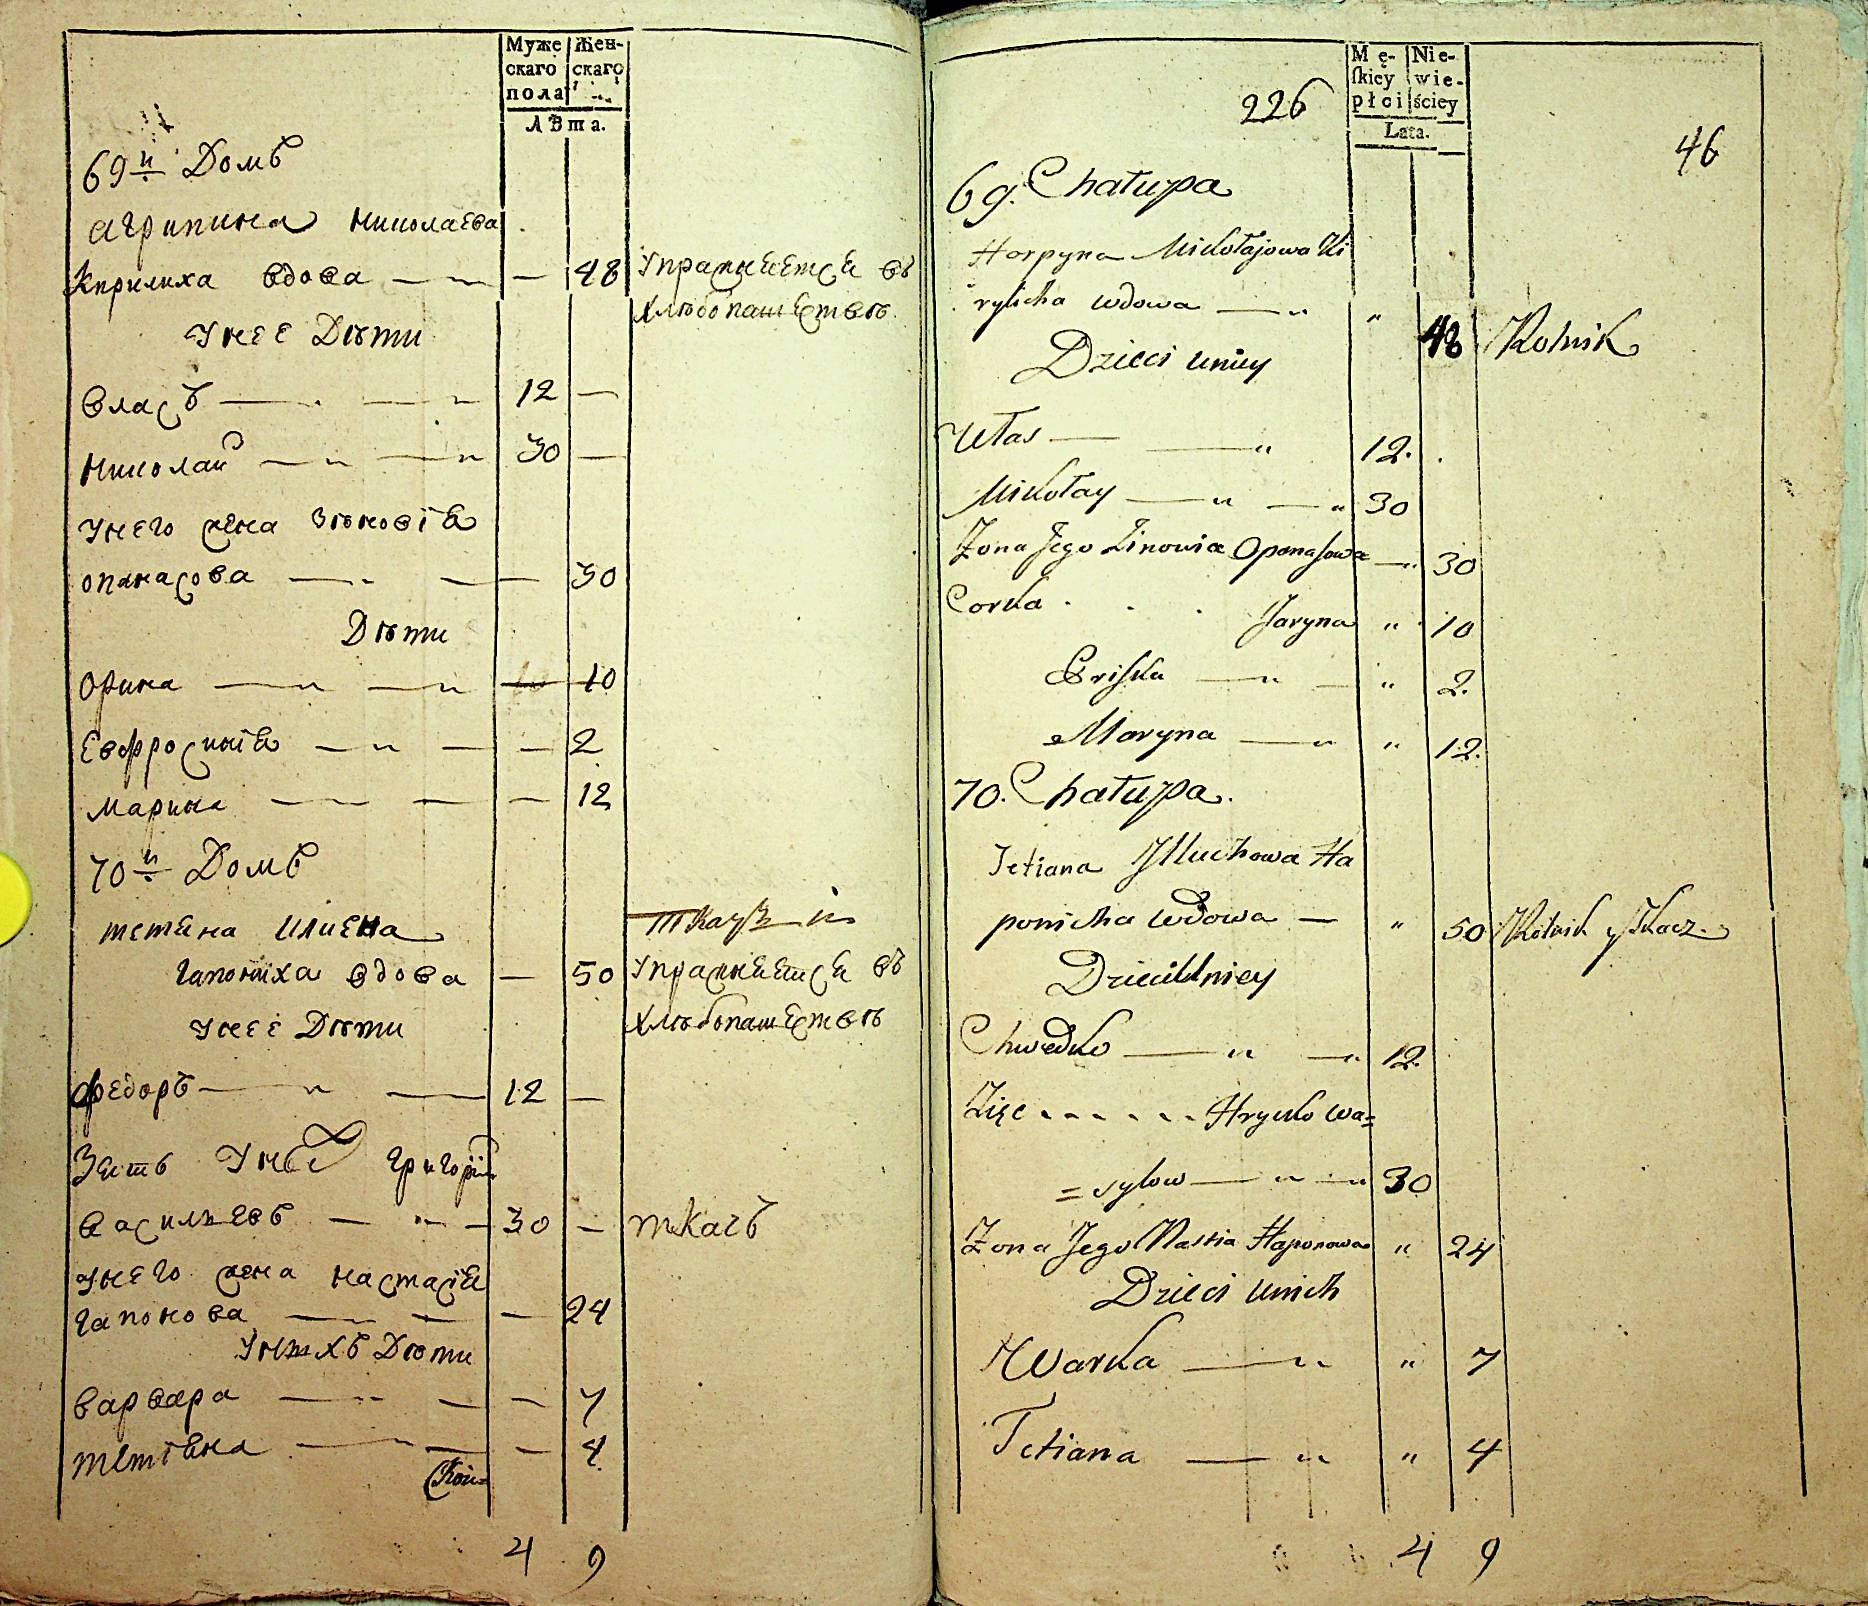 Муже
скаго
пола
Жен-
скаго
Лѣта.
69й Домъ
агрипина николаева
Кирилиха вдова — — 48 Упражняется въ
Хлѣбопашествѣ
Унее Дѣти
власъ — — 12 —
николай — — 30 —
Унего жена Зѣновія
опанасова — — 30
Дѣти
орина — — 10
Евфросинія — — 2
марина — — — 12
70й Домъ
тетяна илиена
гапониха вдова — 50 Упражняется въ
Хлѣбопашествѣ
Унее Дѣти
федоръ — — 12 —
Зять Унее григорій
васильевъ — — 30 — ткачъ
Унего жена настасія
гапонова — — — 24
Унихъ Дѣти
варвара — — — 7
тетіяна — — — 4
4 9
226
Mę-
skiey
płci
Nie-
wie-
ściey
Lata.
46
69. Chałupa
Horpyna Mikołajowa Ki
rylicha wdowa — „ „ 48 Rolnik
Dzieci uniey
Włas — — „ 12.
Mikołay — „ — „ 30
Żona Jego Zinowia Oponasowa — „ 30
Corka . . . Jaryna „ 10
Priska — „ — „ 2.
Maryna — „ „ 12.
70. Chałupa.
Tetiana Illuchowa Ha
ponicha wdowa — „ 50 Rolnik y Tkacz.
Dzieci Uniey
Chwedko — „ — „ 12.
Zięc . . . . . . Hrycko Wa=
=sylow — „ — „ 30
Żona Jego Nastia Haponowa „ 24
Dzieci unich
Warka — „ „ 7
Tetiana — „ „ 4
4 9